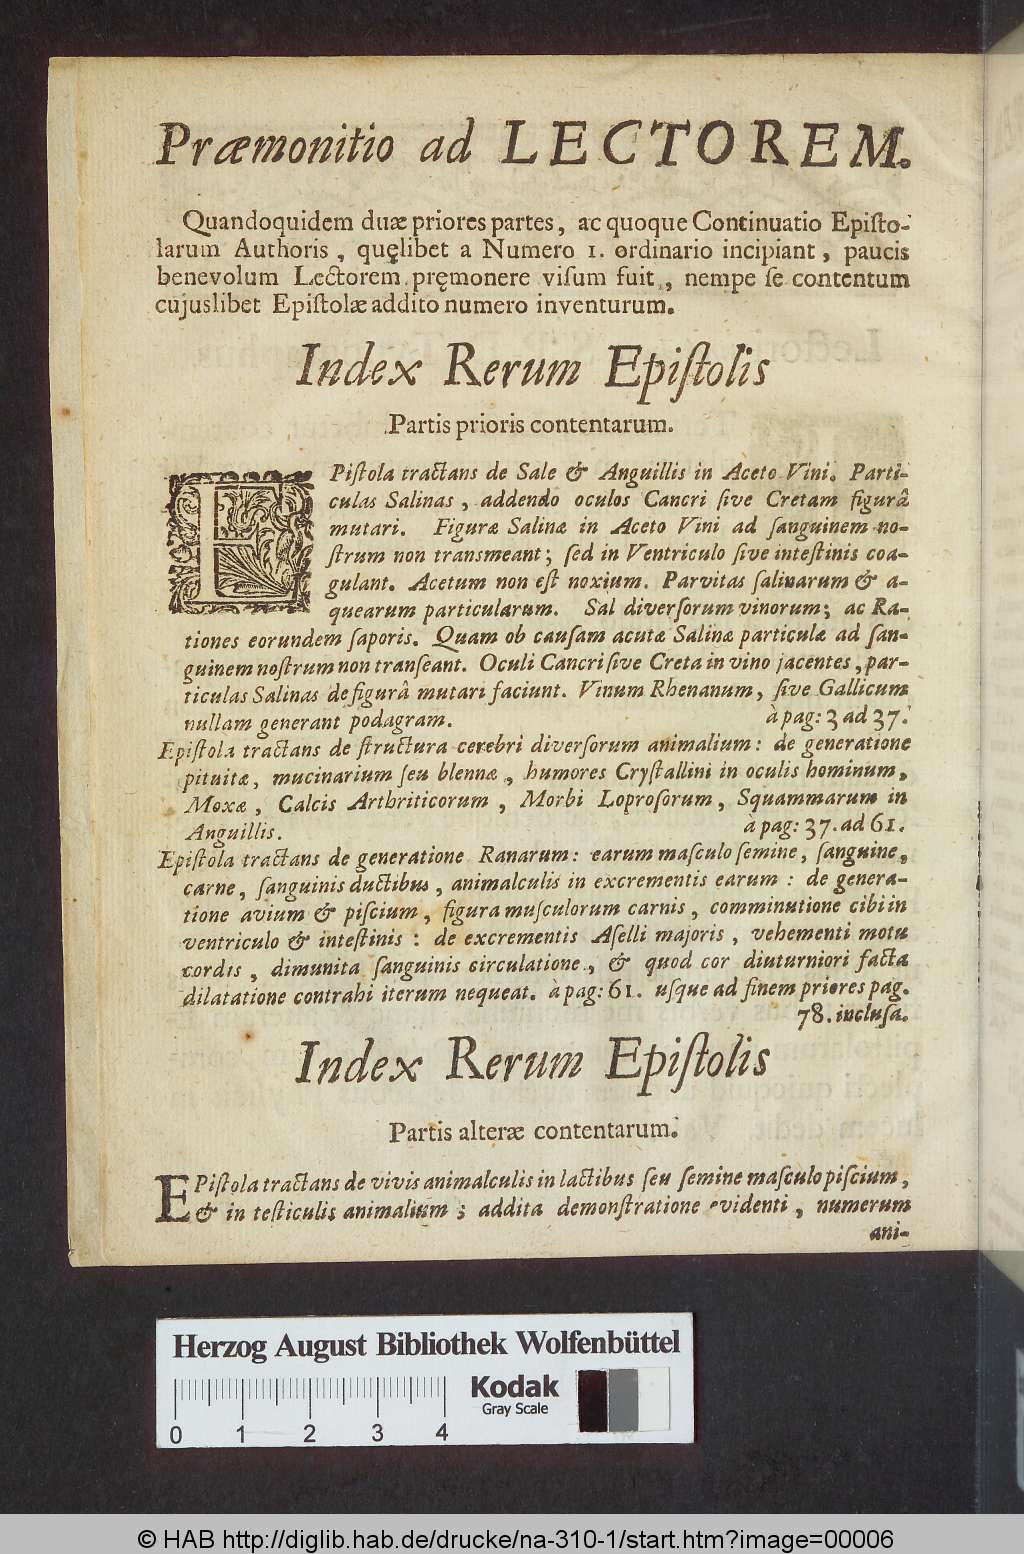 Præmonitio ad LECTOREM.
Quandoquidem duæ priores partes, ac quoque Continuatio Episto-
larum Authoris, quęlibet a Numero 1. ordinario incipiant, paucis
benevolum Lectorem pręmonere visum fuit, nempe se contentum
cujuslibet Epistolæ addito numero inventurum.
Index Rerum Epistolis
Partis prioris contentarum.
EPistola tractans de Sale & Anguillis in Aceto Vini. Parti-
culas Salinas, addendo oculos Cancri sive Cretam figurâ
mutari. Figuræ Salinæ in Aceto Vini ad sanguinem no-
strum non transmeant; sed in Ventriculo sive intestinis coa-
gulant. Acetum non est noxium. Parvitas salinarum & a-
quearum particularum. Sal diversorum vinorum; ac Ra-
tiones eorundem saporis. Quam ob causam acutæ Salinæ particulæ ad san-
guinem nostrum non transeant. Oculi Cancri sive Creta in vino jacentes, par-
ticulas Salinas de figurâ mutari faciunt. Vinum Rhenanum, sive Gallicum
nullam generant podagram. à pag: 3 ad 37.
Epistola tractans de structura cerebri diversorum animalium: de generatione
pituitæ, mucinarium seu blennæ, humores Crystallini in oculis hominum,
Moxæ, Calcis Arthriticorum, Morbi Loprosorum, Squammarum in
Anguillis. à pag: 37. ad 61.
Epistola tractans de generatione Ranarum: earum masculo semine, sanguine,
carne, sanguinis ductibus, animalculis in excrementis earum: de genera-
tione avium & piscium, figura musculorum carnis, comminutione cibi in
ventriculo & intestinis: de excrementis Aselli majoris, vehementi motu
cordis, dimunita sanguinis circulatione, & quod cor diuturniori facta
dilatatione contrahi iterum nequeat. à pag: 61. usque ad finem priores pag.
78. inclusa.
Index Rerum Epistolis
Partis alteræ contentarum.
EPistola tractans de vivis animalculis in lactibus seu semine masculo piscium,
& in testiculis animalium; addita demonstratione evidenti, numerum
ani-
Herzog August Bibliothek Wolfenbüttel
Kodak
Gray Scale
0 1 2 3 4
© HAB http://diglib.hab.de/drucke/na-310-1/start.htm?image=00006